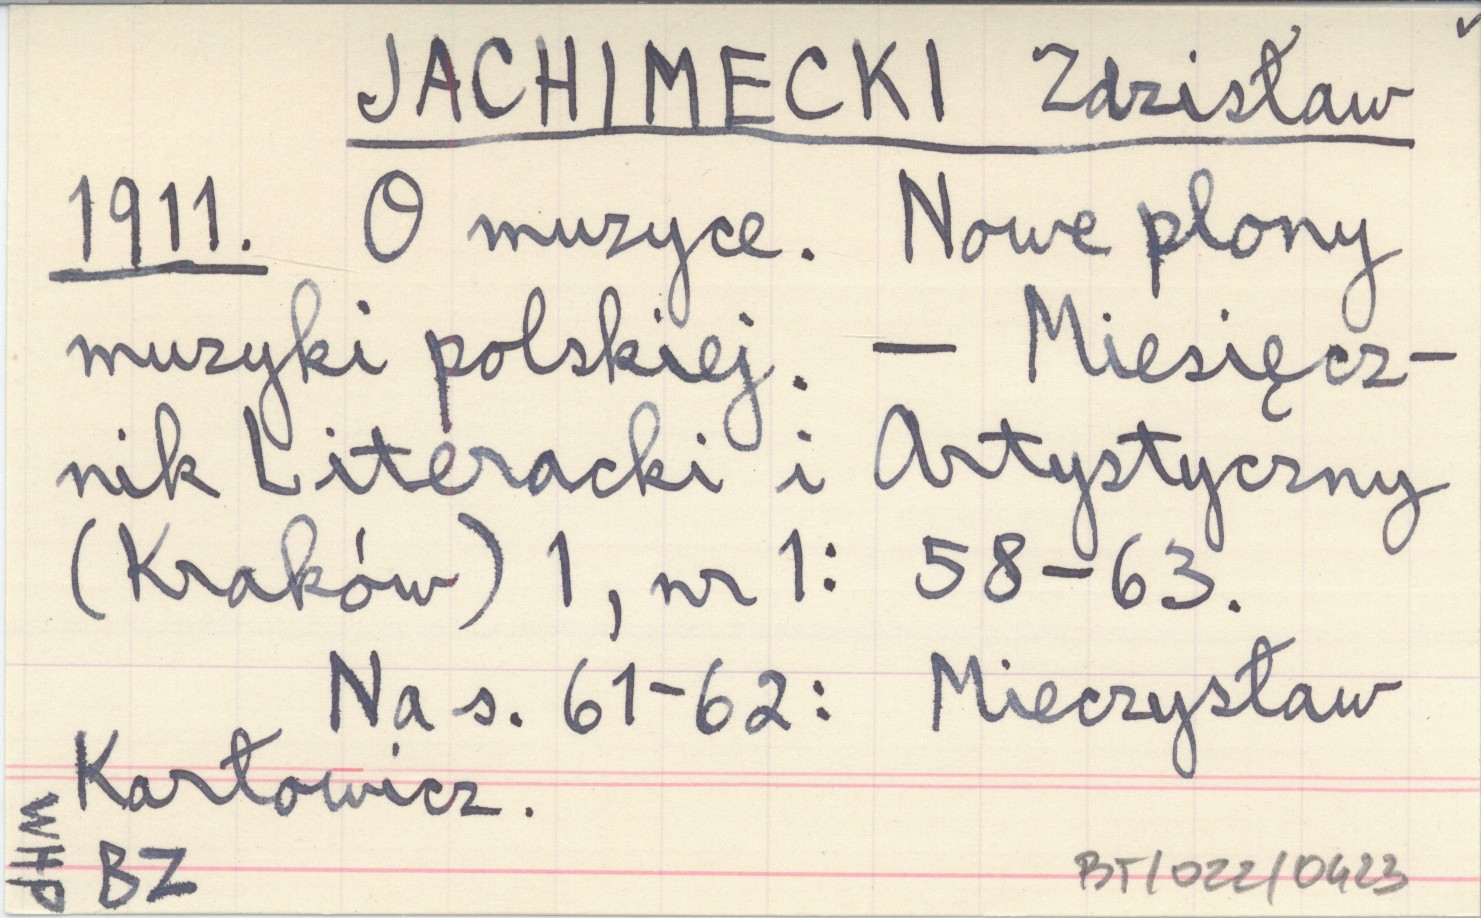 JACHIMECKI Zdzisław
1911. O muzyce. Nowe plony
muzyki polskiej. — Miesięcz-
nik Literacki i Artystyczny
(Kraków) 1, nr 1: 58-63.
Na s. 61-62: Mieczysław
Karłowicz.
WHP
BZ
BT/022/0423